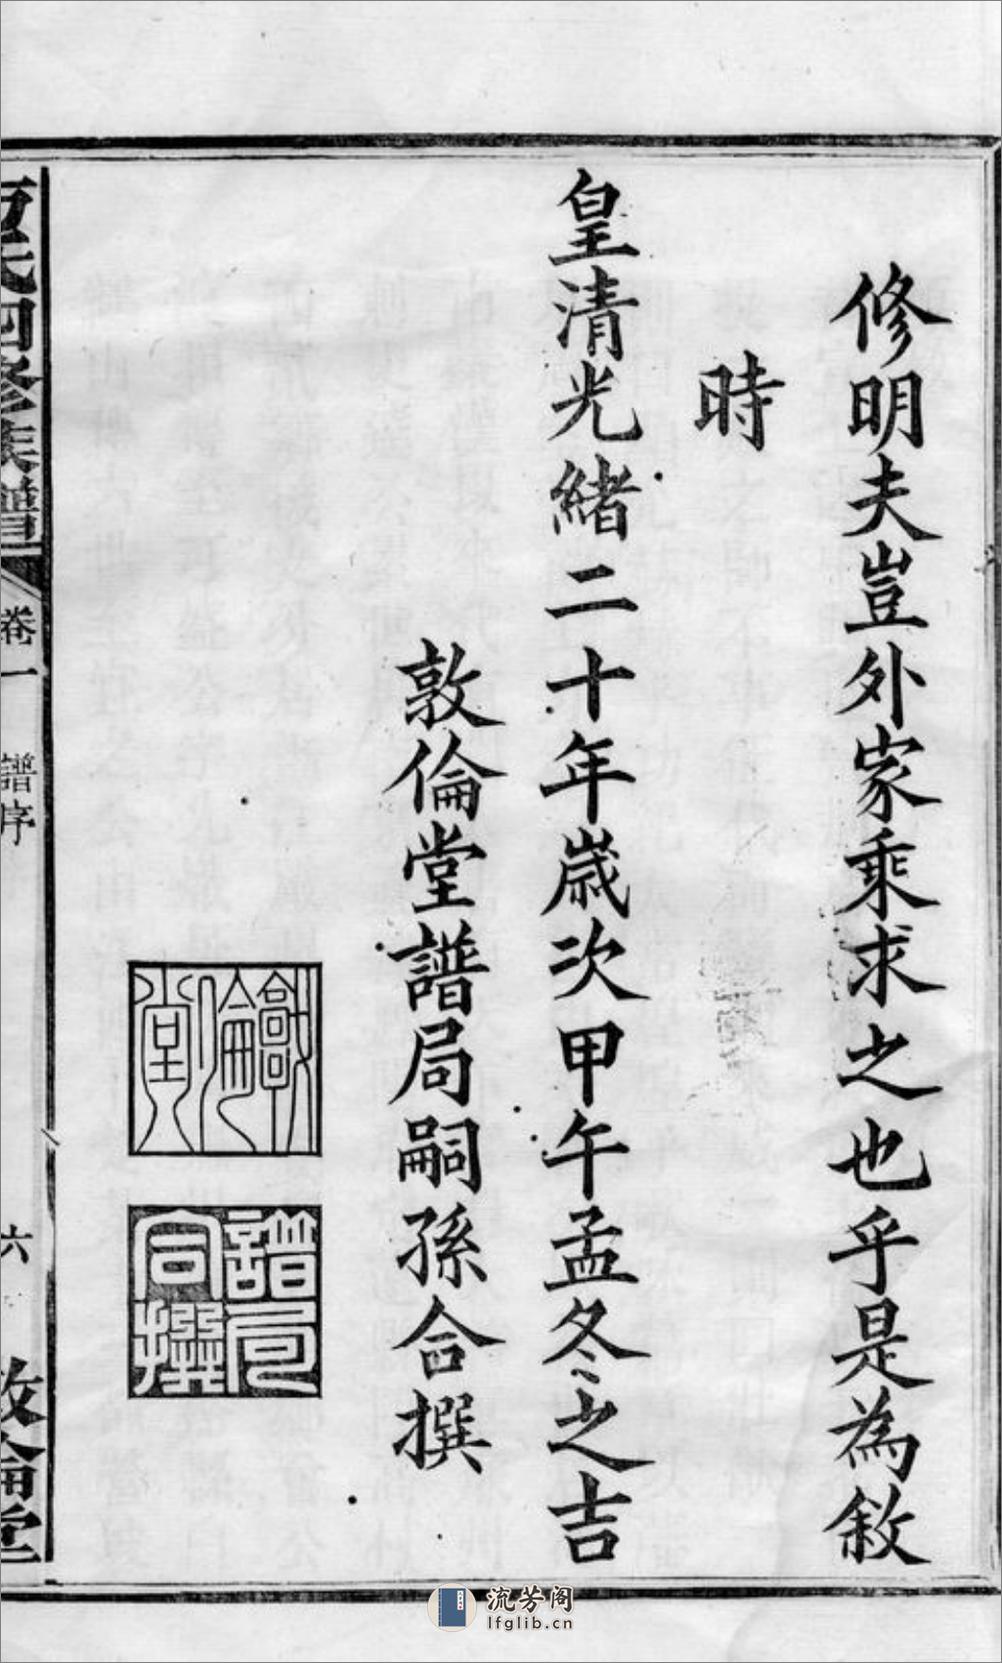 修明夫豈外家乘求之也乎是為敘
時
皇清光緒二十年歲次甲午孟冬之吉
敦倫堂譜局嗣孫合撰
敦倫堂
譜局同撰
氏四修族譜
卷一
譜序
六
敦倫堂
流芳阁
lfglib.cn